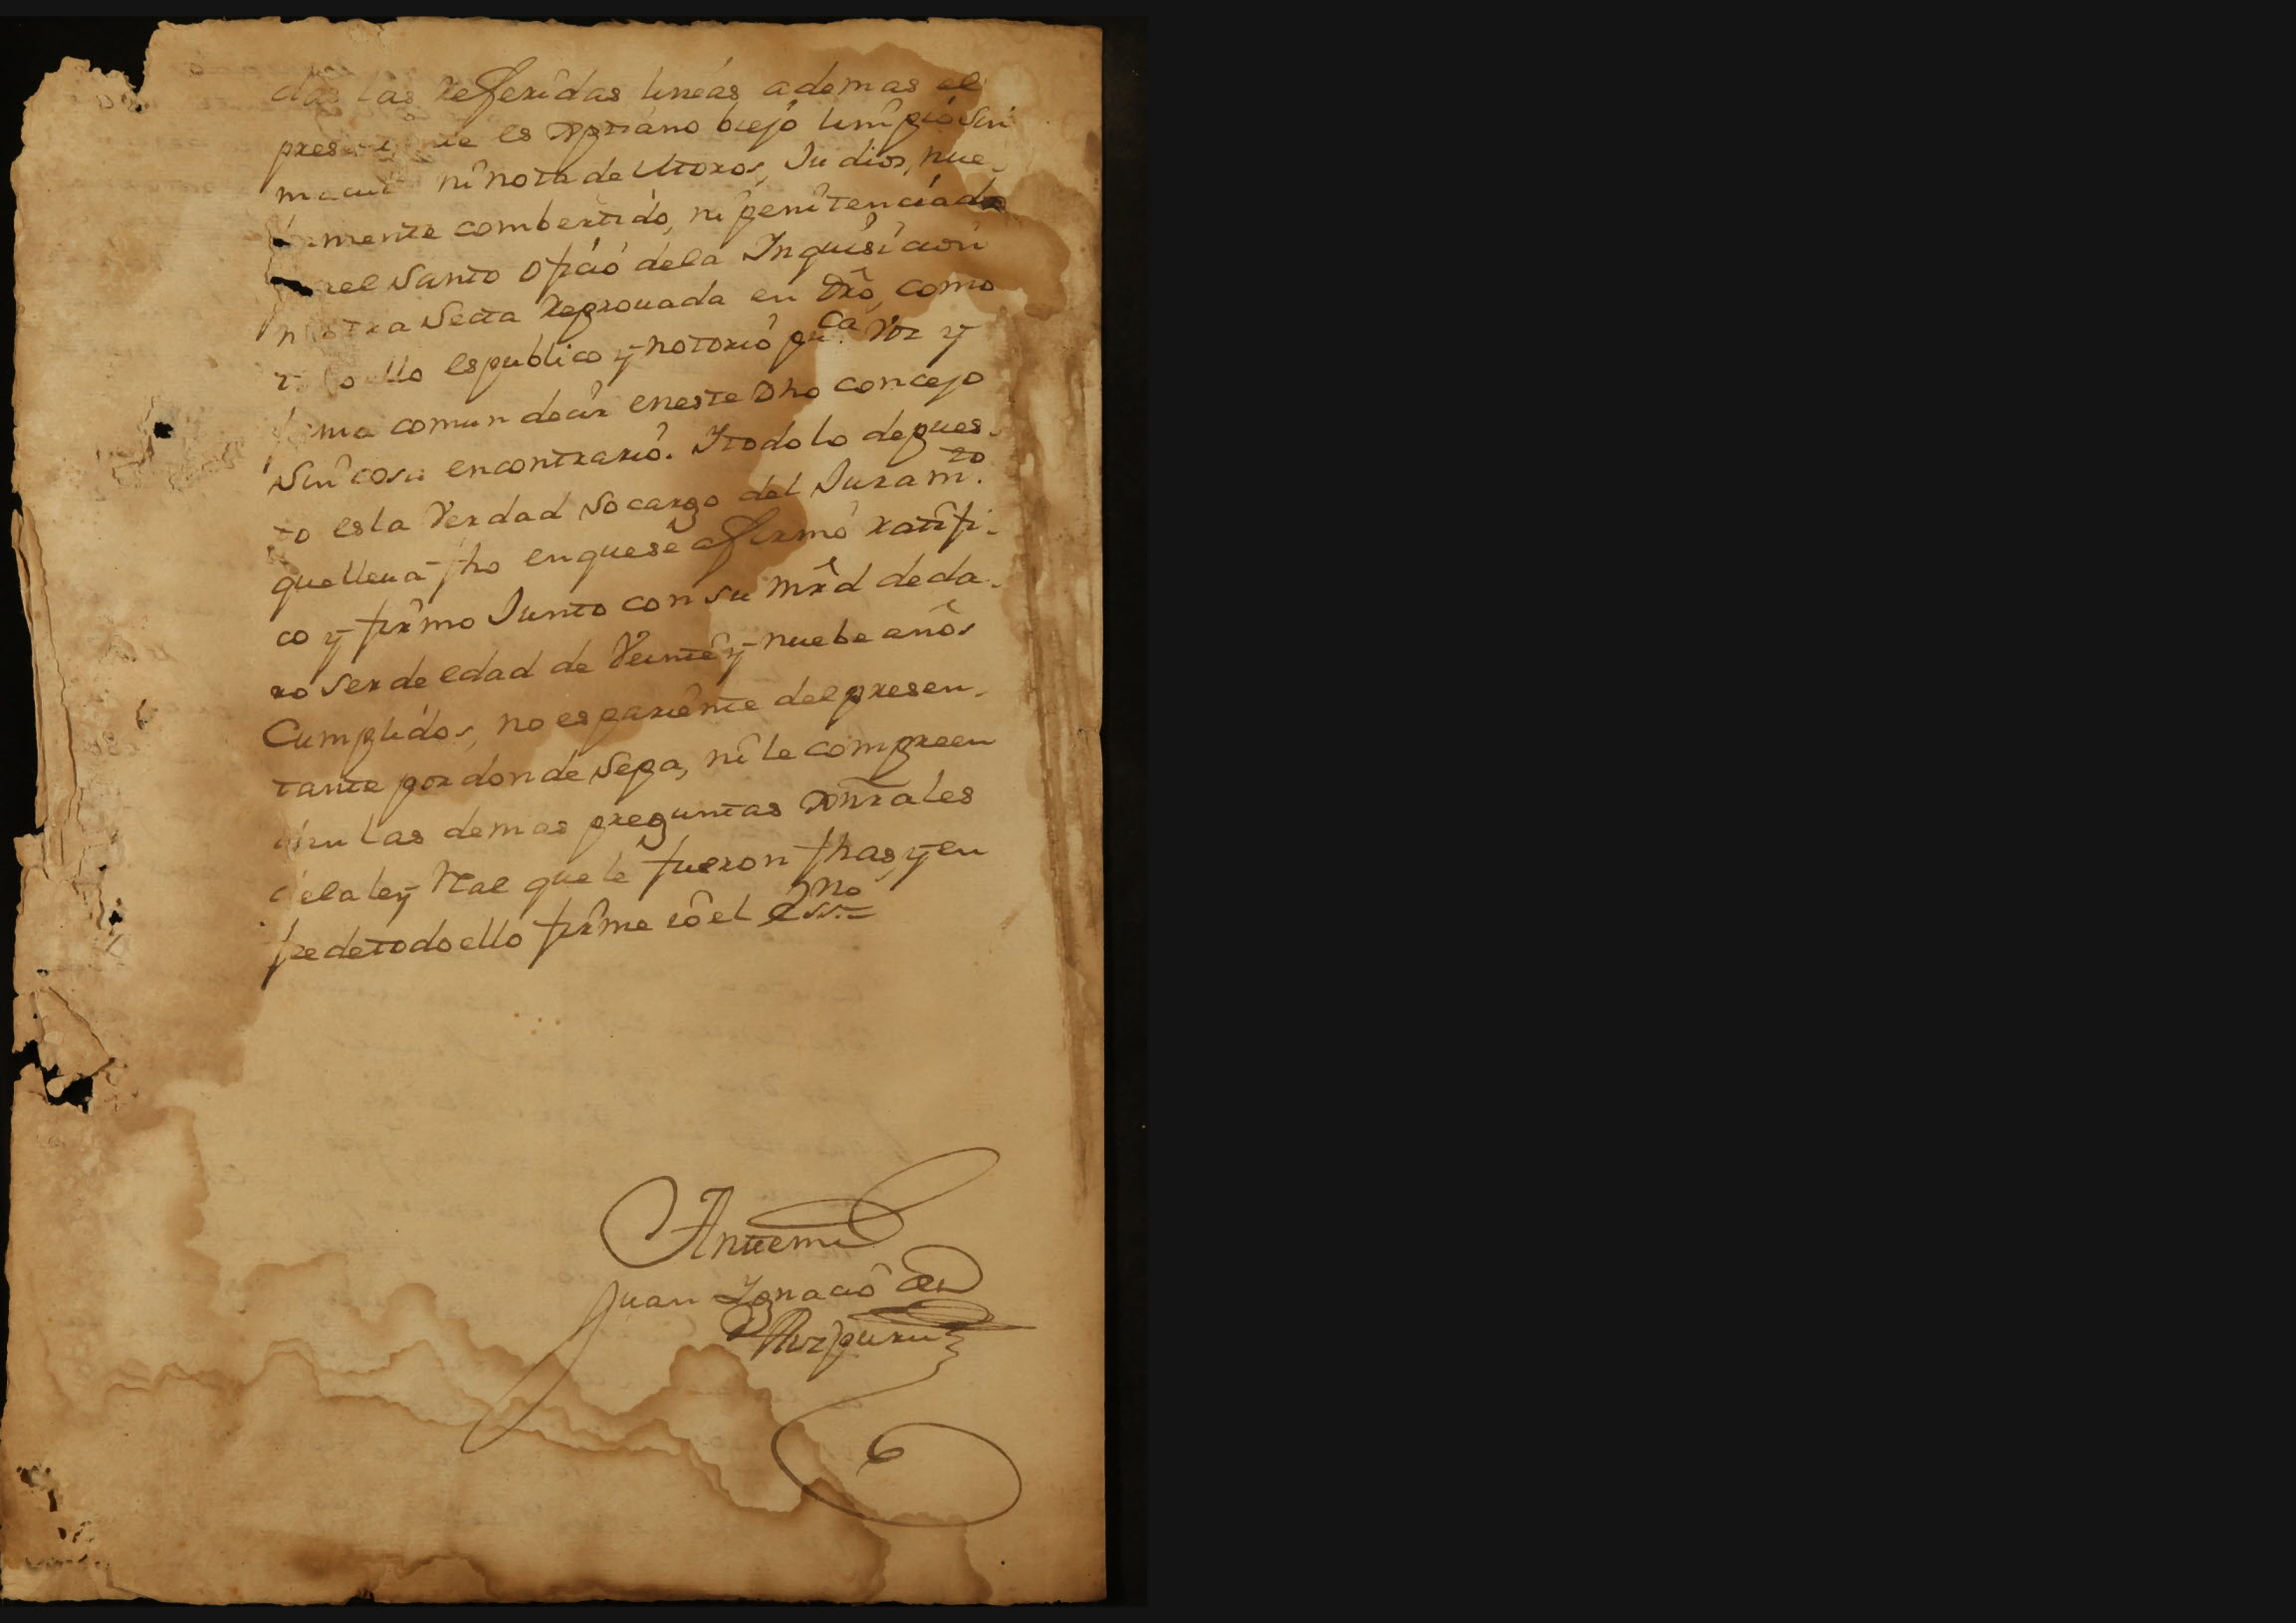 das las Referidas lineas ademas el
es Xptiano biejo limpio sin
ni nota de Moros, Judios, nue-
mente combertido, ni penitenciado
el Santo Ofiçio de la Inquisicion
ni otra Secta Reprouada en Dro, como
todo ello es publico y notorio pu.ca Voz y
fama comun decir en este Dho concejo
Sin cosa encontrario. Y todo lo depues-
to es la Verdad so cargo del Juram.to
que lleua fho en que se affirmo ratifi-
co y firmo Junto con su mrd decla-
ro Ser de edad de Veinte y nuebe años
Cumplidos, no es pariente del presen-
tante por donde Sepa, ni le compreen
den las demas preguntas Genrales
de la ley Real que le fueron fhas, y en
fee de todo ello firme io el Ess.no
Ante mi
Juan Ignacio de
Aizpuru